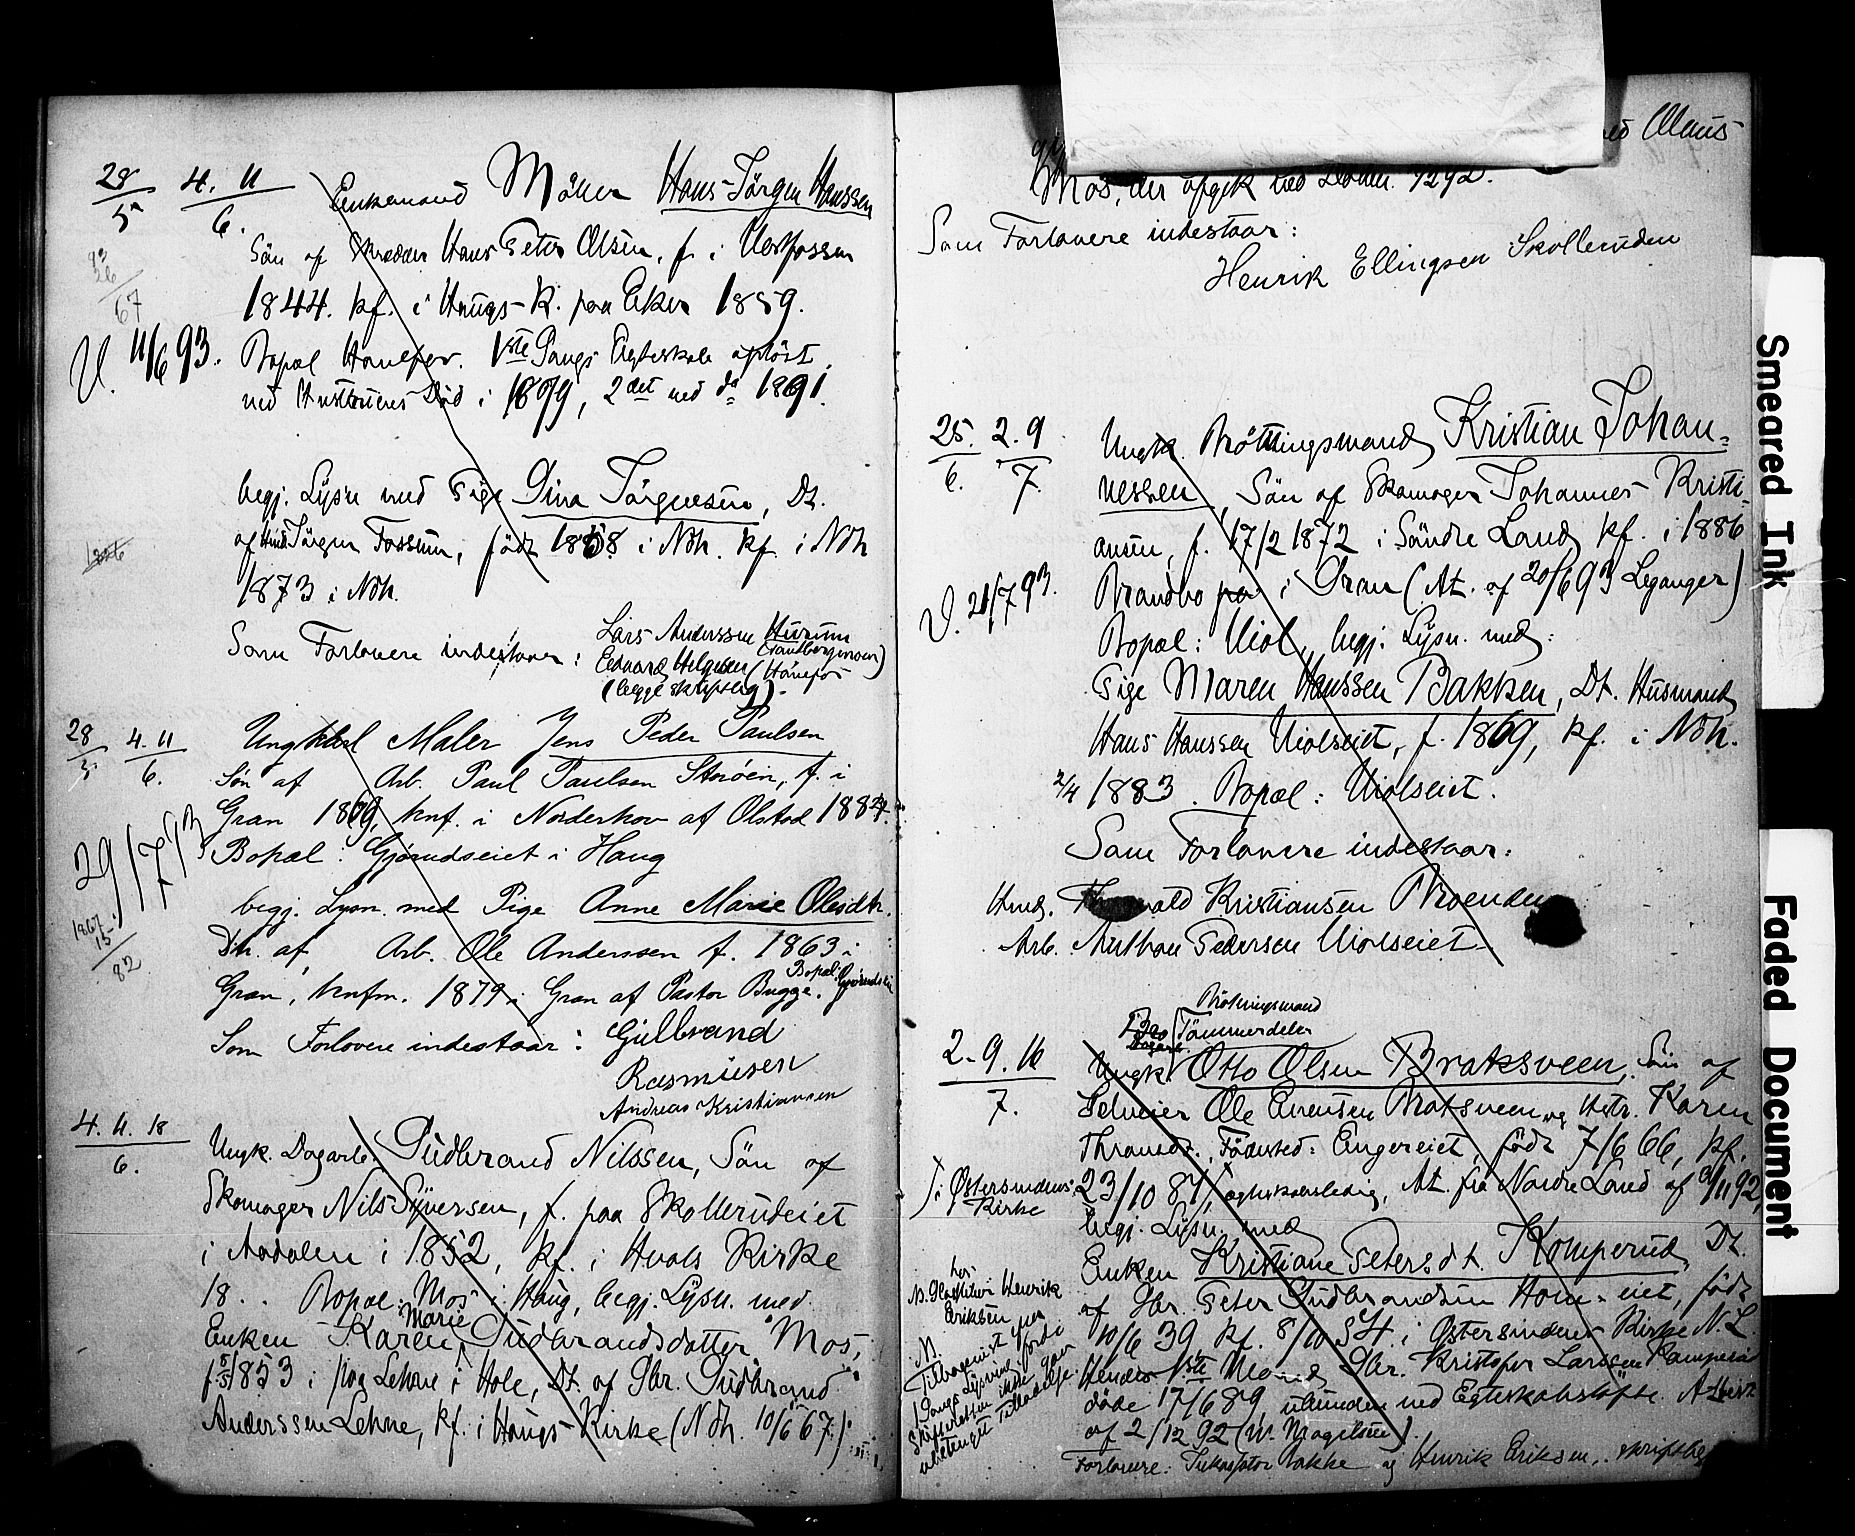 28/5 4. 11/6.
Enkemand Möller Hans Jörgen Hanssen
Sön af Skrædder Hans Peter Olsen, f. i Vestfossen
1844. kf. i Haugs K. paa Eker 1859.
V. 11/6 93.
Bopæl Hönefos. 1ste Gangs Egteskab oplöst
ved Hustruens Död i 1889, 2det ved do 1891.
begj. Lysn. med Pige Dina Jörgensen, Dt.
af Jörgen Fossum, födt 1858 i Ndh. kf. i Ndh
1873 i Ndh.
Som Forlovere indestaaer:
Lars Anderssen Hurum
Edvard Helgesen (Hönefos
(begge skriftlig).
28/5 4. 11/6.
Ungkarl Maler Jens Peder Paulsen
Søn af Arb. Paul Paulsen Storøen, f. i
Gran 1869, knf. i Norderhov af Olstad 1884.
29/7 93
Bopæl: Gjørudseiet i Haug
begj. Lysn. med Pige Anne Marie Olesdtr.
Dtr. af Arb. Ole Anderssen f. 1863 i
Gran, knfm. 1879 i Gran af Pastor Bugge. Bopæl:
1867
15
82
Som Forlovere indestaar: Gulbrand
Rasmusen
Andreas Kristiansen
4. 11. 18/6.
Ungk. Dagarb. Gudbrand Nilssen, Sön af
Skomager Nils Syversen, f. paa Skollerudeiet
i Aadalen i 1852, kf. i Hvals Kirke
18 . . Bopæl: Mos i Haug, begj. Lysn. med
Enken Karen Marie Gudbrandsdatter Mos,
f. 5/5 1853 i paa Lehne i Hole, Dt. af Gbr. Gudbrand
Anderssen Lehne, kf. i Haugs Kirke (Ndh. 10/6 67).
Olaus
Mos, der afgik ved Döden 1892.
Som Forlovere indestaar:
Henrik Ellingsen Skolleruden
25. 2. 9
6. 7.
Ungk. Bröttningsmand Kristian Johan-
nessen, Sön af Skomager Johannes Kristi-
ansen, f. 17/2 1872 i Söndre Land kf. i 1886
V. 21/7 93.
Brandbo paa i Gran (At. af 20/6 93 Leganger)
Bopæl: Viol, begj. Lysn. med:
Pige Maren Hanssen Bakken, Dt. Husmand
Hans Hanssen Violseiet, f. 1869, kf. i Ndh.
2/4 1883. Bopæl: Violseiet.
Som Forlovere indestaar:
Hmd. Kristiansen Moenden
Arb. Anthon Pedersen Violseiet
Brötningsmand
Tömmerdeler
2. 9. 16
7.
Ungk. Otto Olsen Bratsveen, Sön af
Selveier Ole Evensen Bratsveen og Hstr. Karen
Thronsdr., Födested: Engereiet, födt 7/6 66, kf.
i Østersindens Kirke
23/10 81, egteskabsledig, At. fra Nordre Land af 9/11 92,
begj. Lysn. med
Enken Kristiane Petersdt. Komperud, Dt.
af Gbr. Peter Gudbrandsen Hom-eiet, födt
10/6 39 kf. 8/10 54 i Østersindens Kirke N. L.
Hendes 1ste Mand Gbr. Kristofer Larssen Kamperud
döde 17/6 89, ubunden ved Egteskabslöfte. Attest
af 2/12 92 (W. Magelsen).
Forlovere: Bakke og Henrik Eriksen, skriftlig
hos
Henrik
Eriksen
N.
Smeared Ink
Faded Document